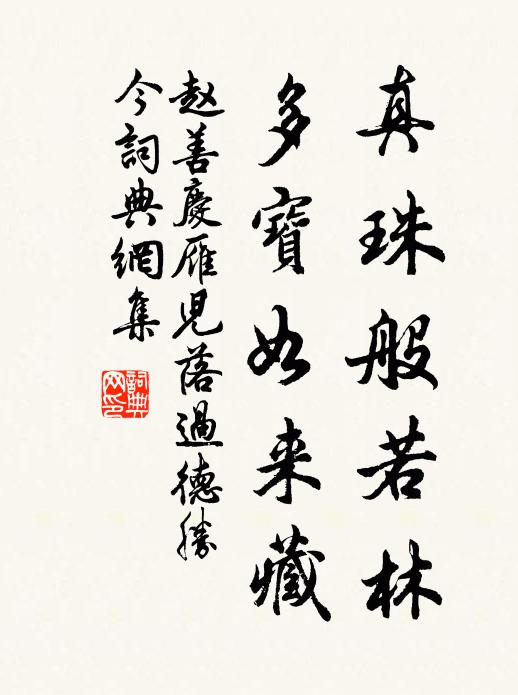 真珠般若林
多寶如来藏
赵善慶雁児落過德勝
今詞典網集
詞典
网印